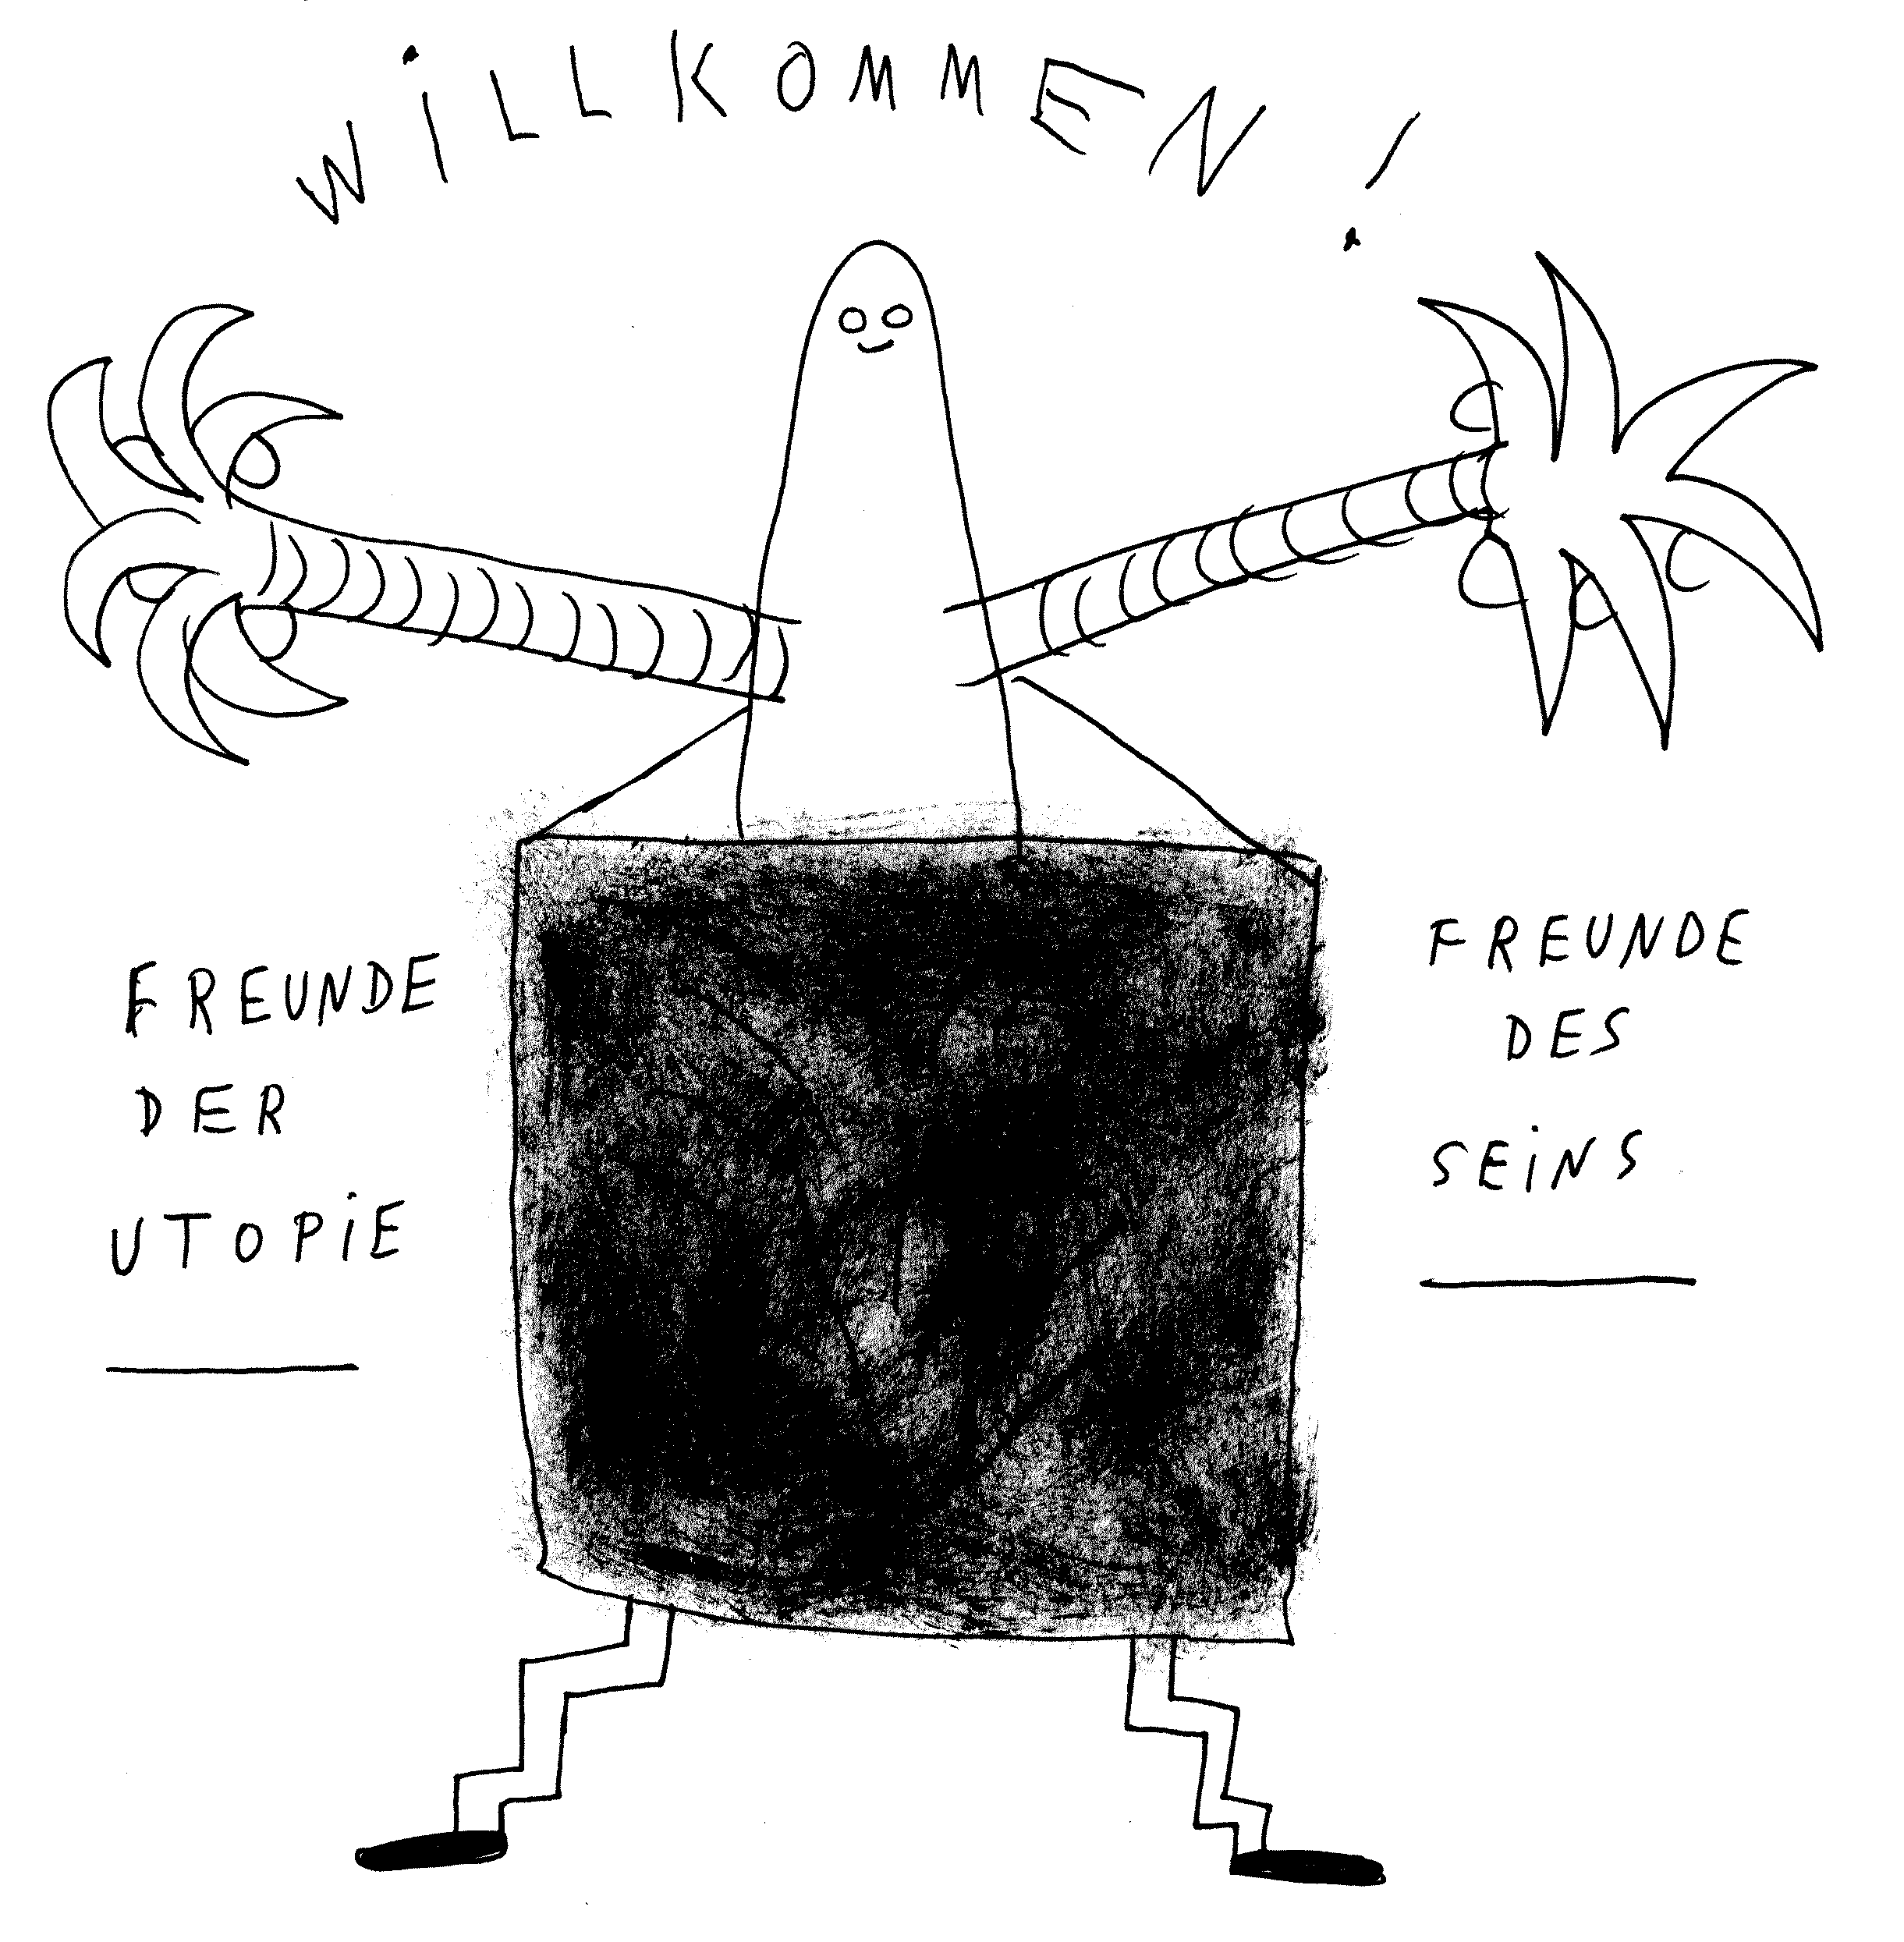 WiLLKOMMEN!
FREUNDE
DER
UTOPiE
FREUNDE
DES
SEiNS